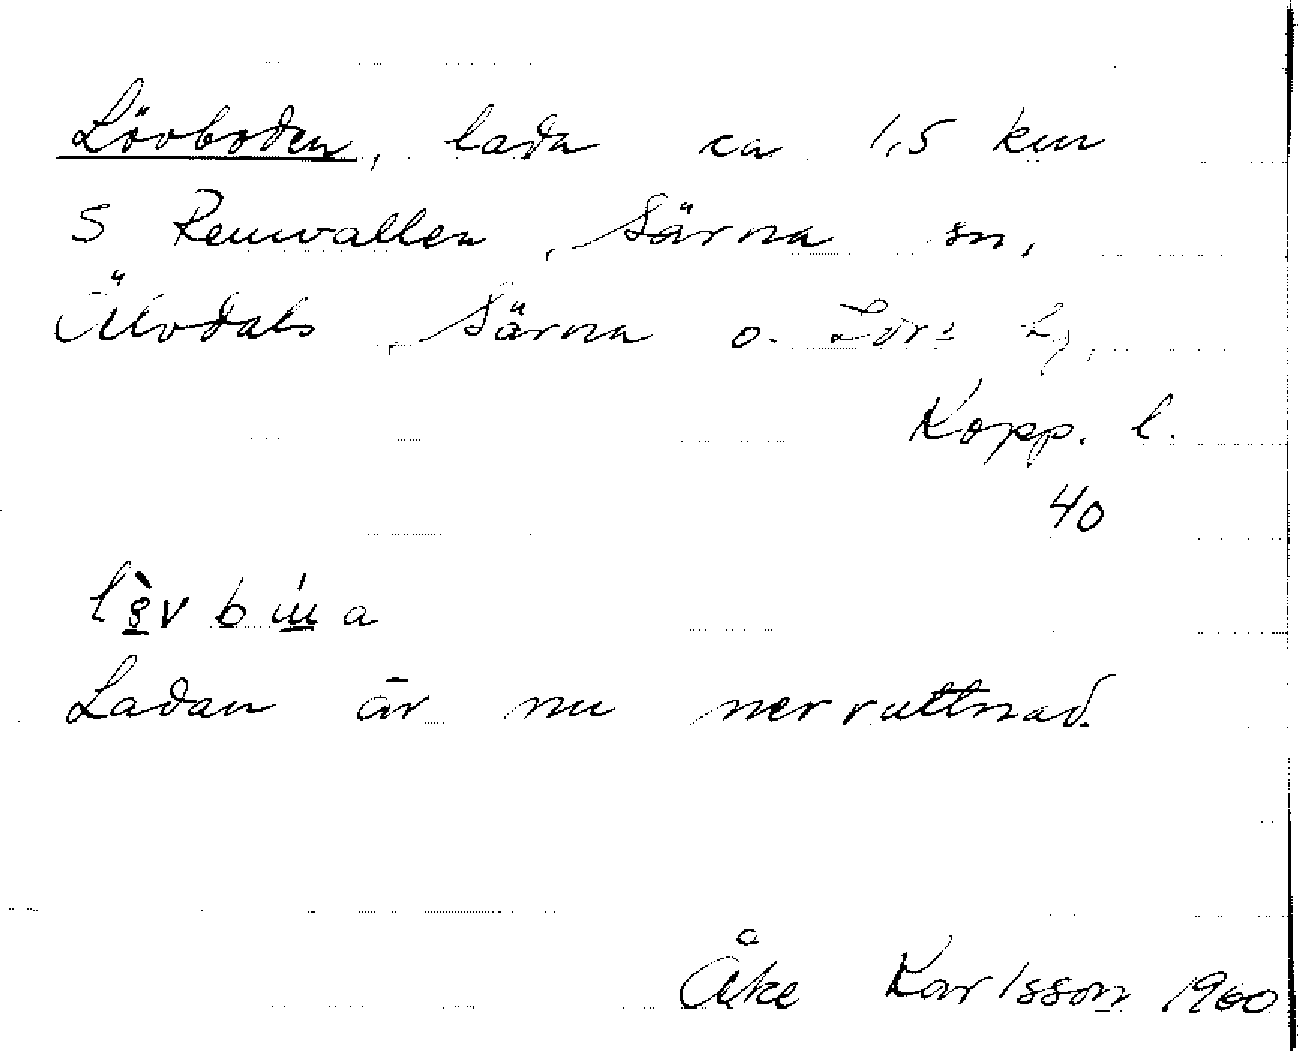 Lövboden, lada ca 1,5 km
S Remvallen, Särna sn,
Älvdals, Särna o. Idre tg,
Kopp. l.
40
Ladan är nu nerruttnad.
Åke Karlsson 1960